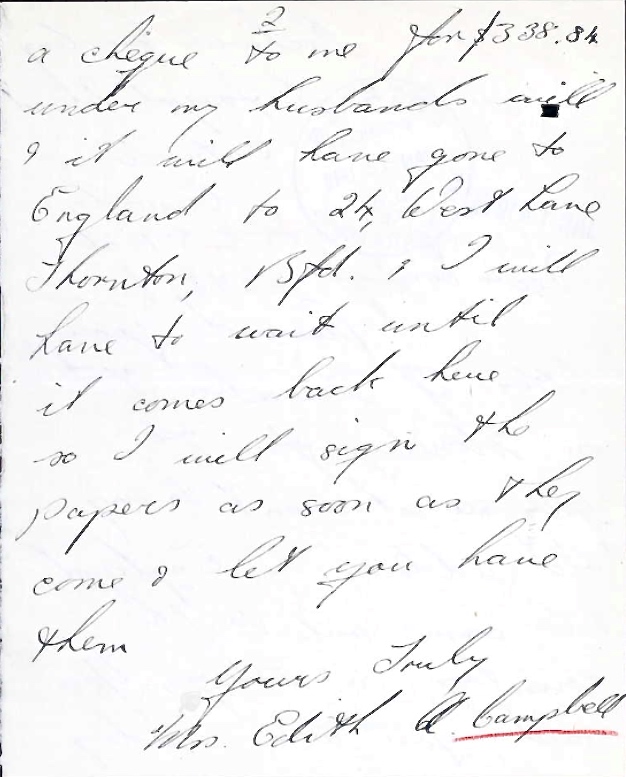 2
a cheque to me for $338.84
under my husbands will
& it will have gone to
England to 24, West Lane
Thornton, Bfd. & I will
have to wait until
it comes back here
so I will sign the
papers as soon as they
come & let you have
them
Yours Truly
Mrs. Edith A Campbell